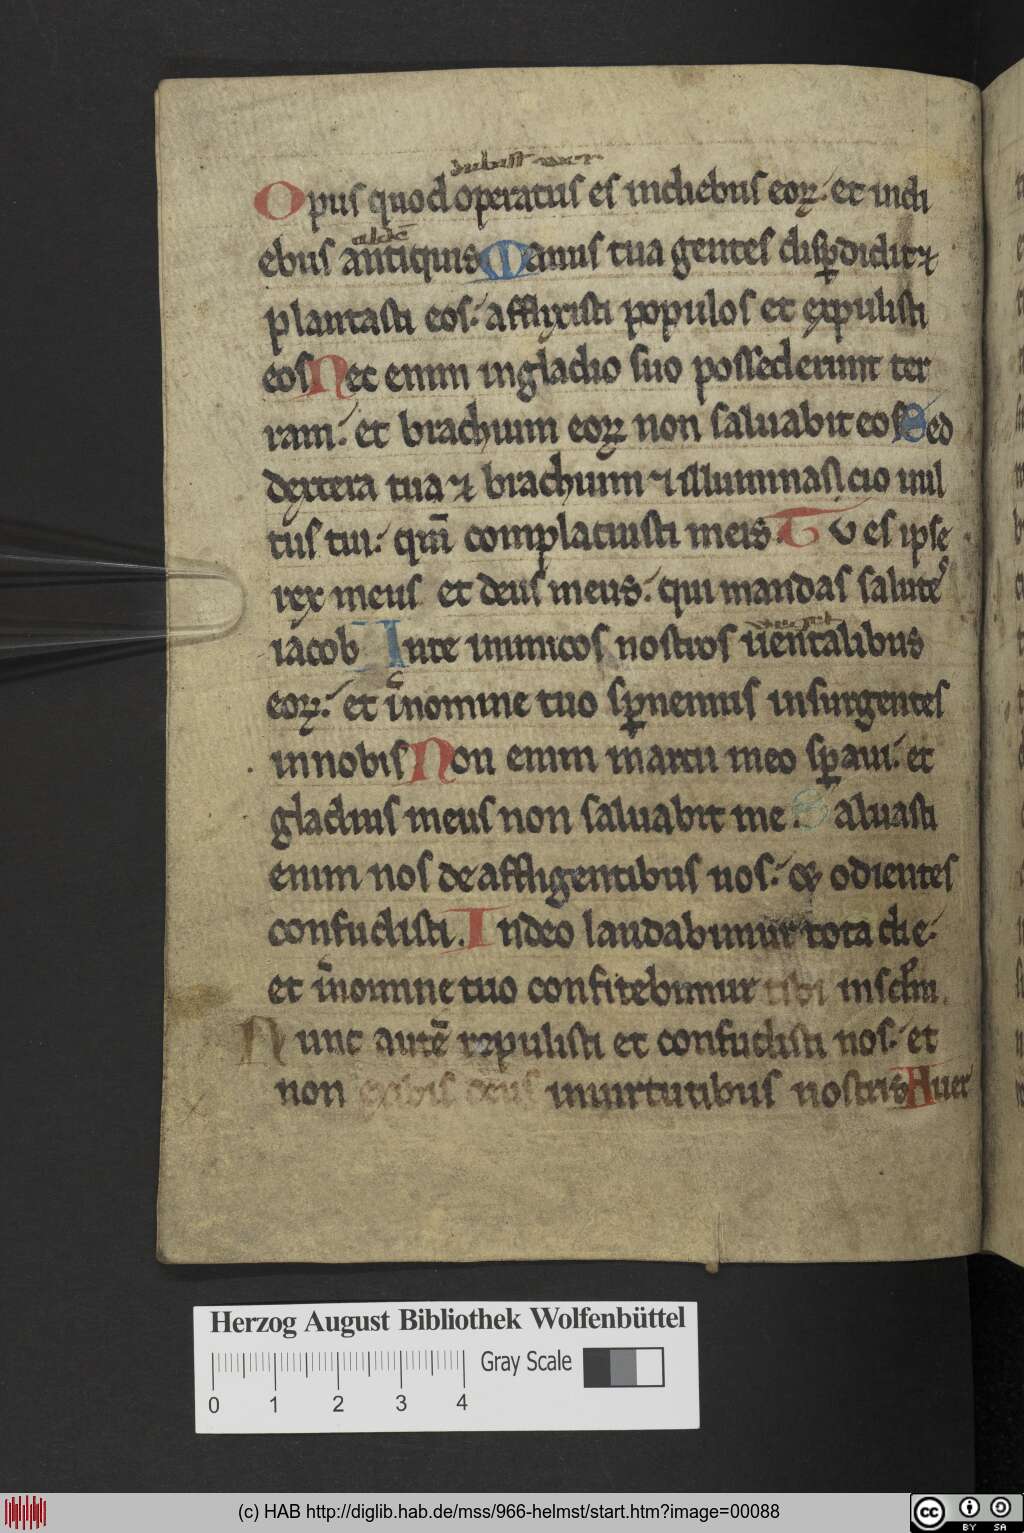 Opus quod operatus es in diebus eoꝝ. et in di
ebus antiquis Manus tua gentes disꝑdidit ⁊
plantasti eos. afflixisti populos et expulisti
eos Nec enim in gladio suo possederunt ter
ram. et brachium eoꝝ non saluabit eos Sed
dextera tua ⁊ brachium ⁊ illuminacio uul
tus tui. qm̄ complacuisti in eis. Tu es ipse
rex meus et deus meus. qui mandas salutē
iacob In te inimicos nostros uentalibus
eoꝝ. et in nomine tuo sꝑnemus insurgentes
in nobis Non enim in arcu meo sꝑaui. et
gladius meus non saluabit me. Saluasti
enim nos de affligentibus nos. et odientes
confudisti. In deo laudabimur tota die.
et in nomine tuo confitebimur tibi in sc̄lm.
Nunc autē reppulisti et confudisti nos. et
non deus in uirtutibus nostris Auer
Herzog August Bibliothek Wolfenbüttel
Gray Scale
0 1 2 3 4
(c) HAB http://diglib.hab.de/mss/966-helmst/start.htm?image=00088
cc BY SA